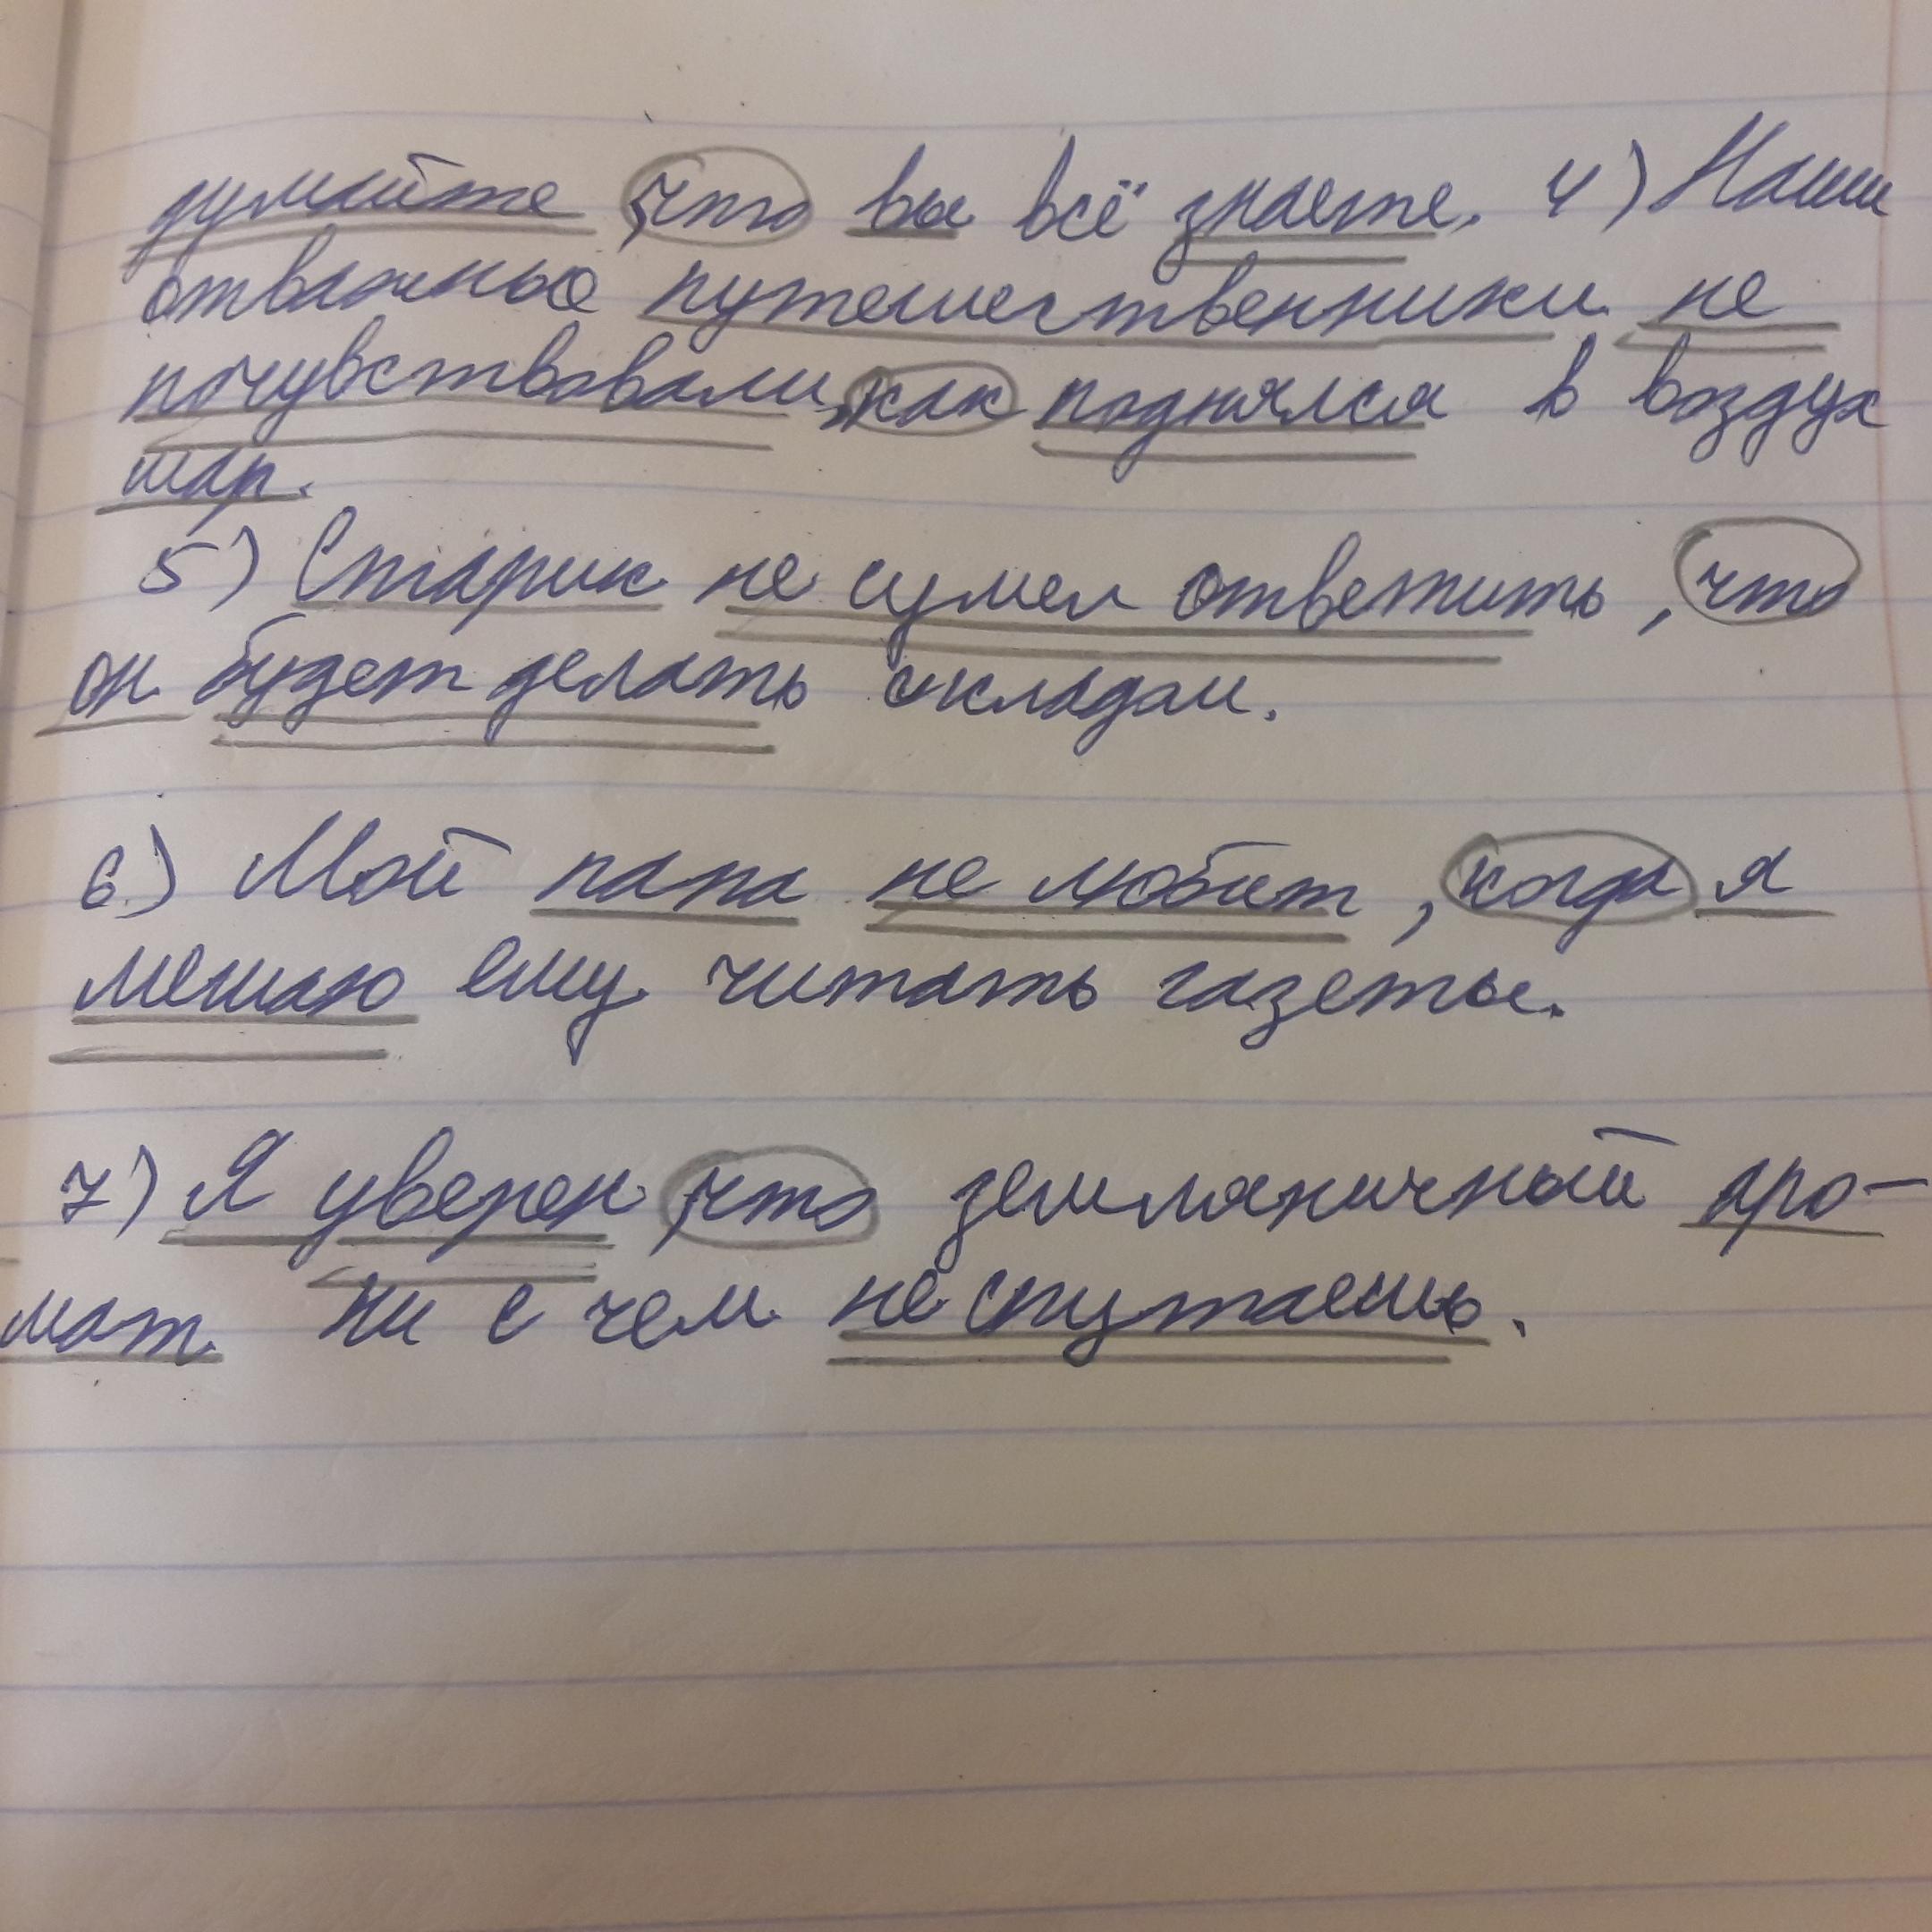 думайте, что вы всё знаете. 4) Наши
отважные путешественники не
почувствовали, как поднялся в воздух
шар.
5) Старик не сумел ответить, что
он будет делать с кладом.
6) Мой папа не любит, когда я
мешаю ему читать газеты.
7) Я уверен, что земляничный аро-
мат ни с чем не спутаешь.